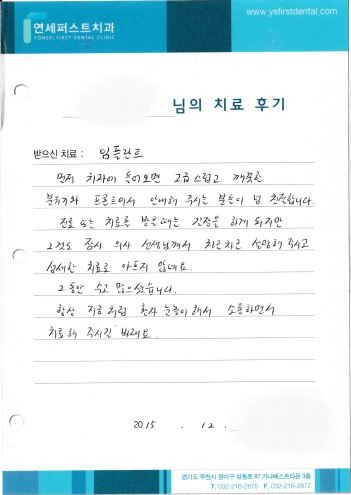 연세퍼스트치과
YONSEI FIRST DENTAL CLINIC
www.ysfirstdental.com
님의 치료 후기
받으신 치료 : 임플란트
먼저 치과에 들어오면 고급스럽고 깨끗한
분위기와 프론트에서 안내해 주시는 분들이 넘 친절합니다.
진료 또는 치료를 받을때는 긴장을 하게 되지만
그것도 잠시 의사 선생님께서 차근차근 설명해 주시고
섬세한 치료로 아프지 않네요.
그동안 수고 많으셨습니다.
항상 지금처럼 환자 눈높이에서 소통하면서
치료해 주시길 바래요.
2015 . 12 .
경기도 부천시 원미구 상동로 87 가나베스트타운 3층
T. 032-216-2875 F. 032-216-2877